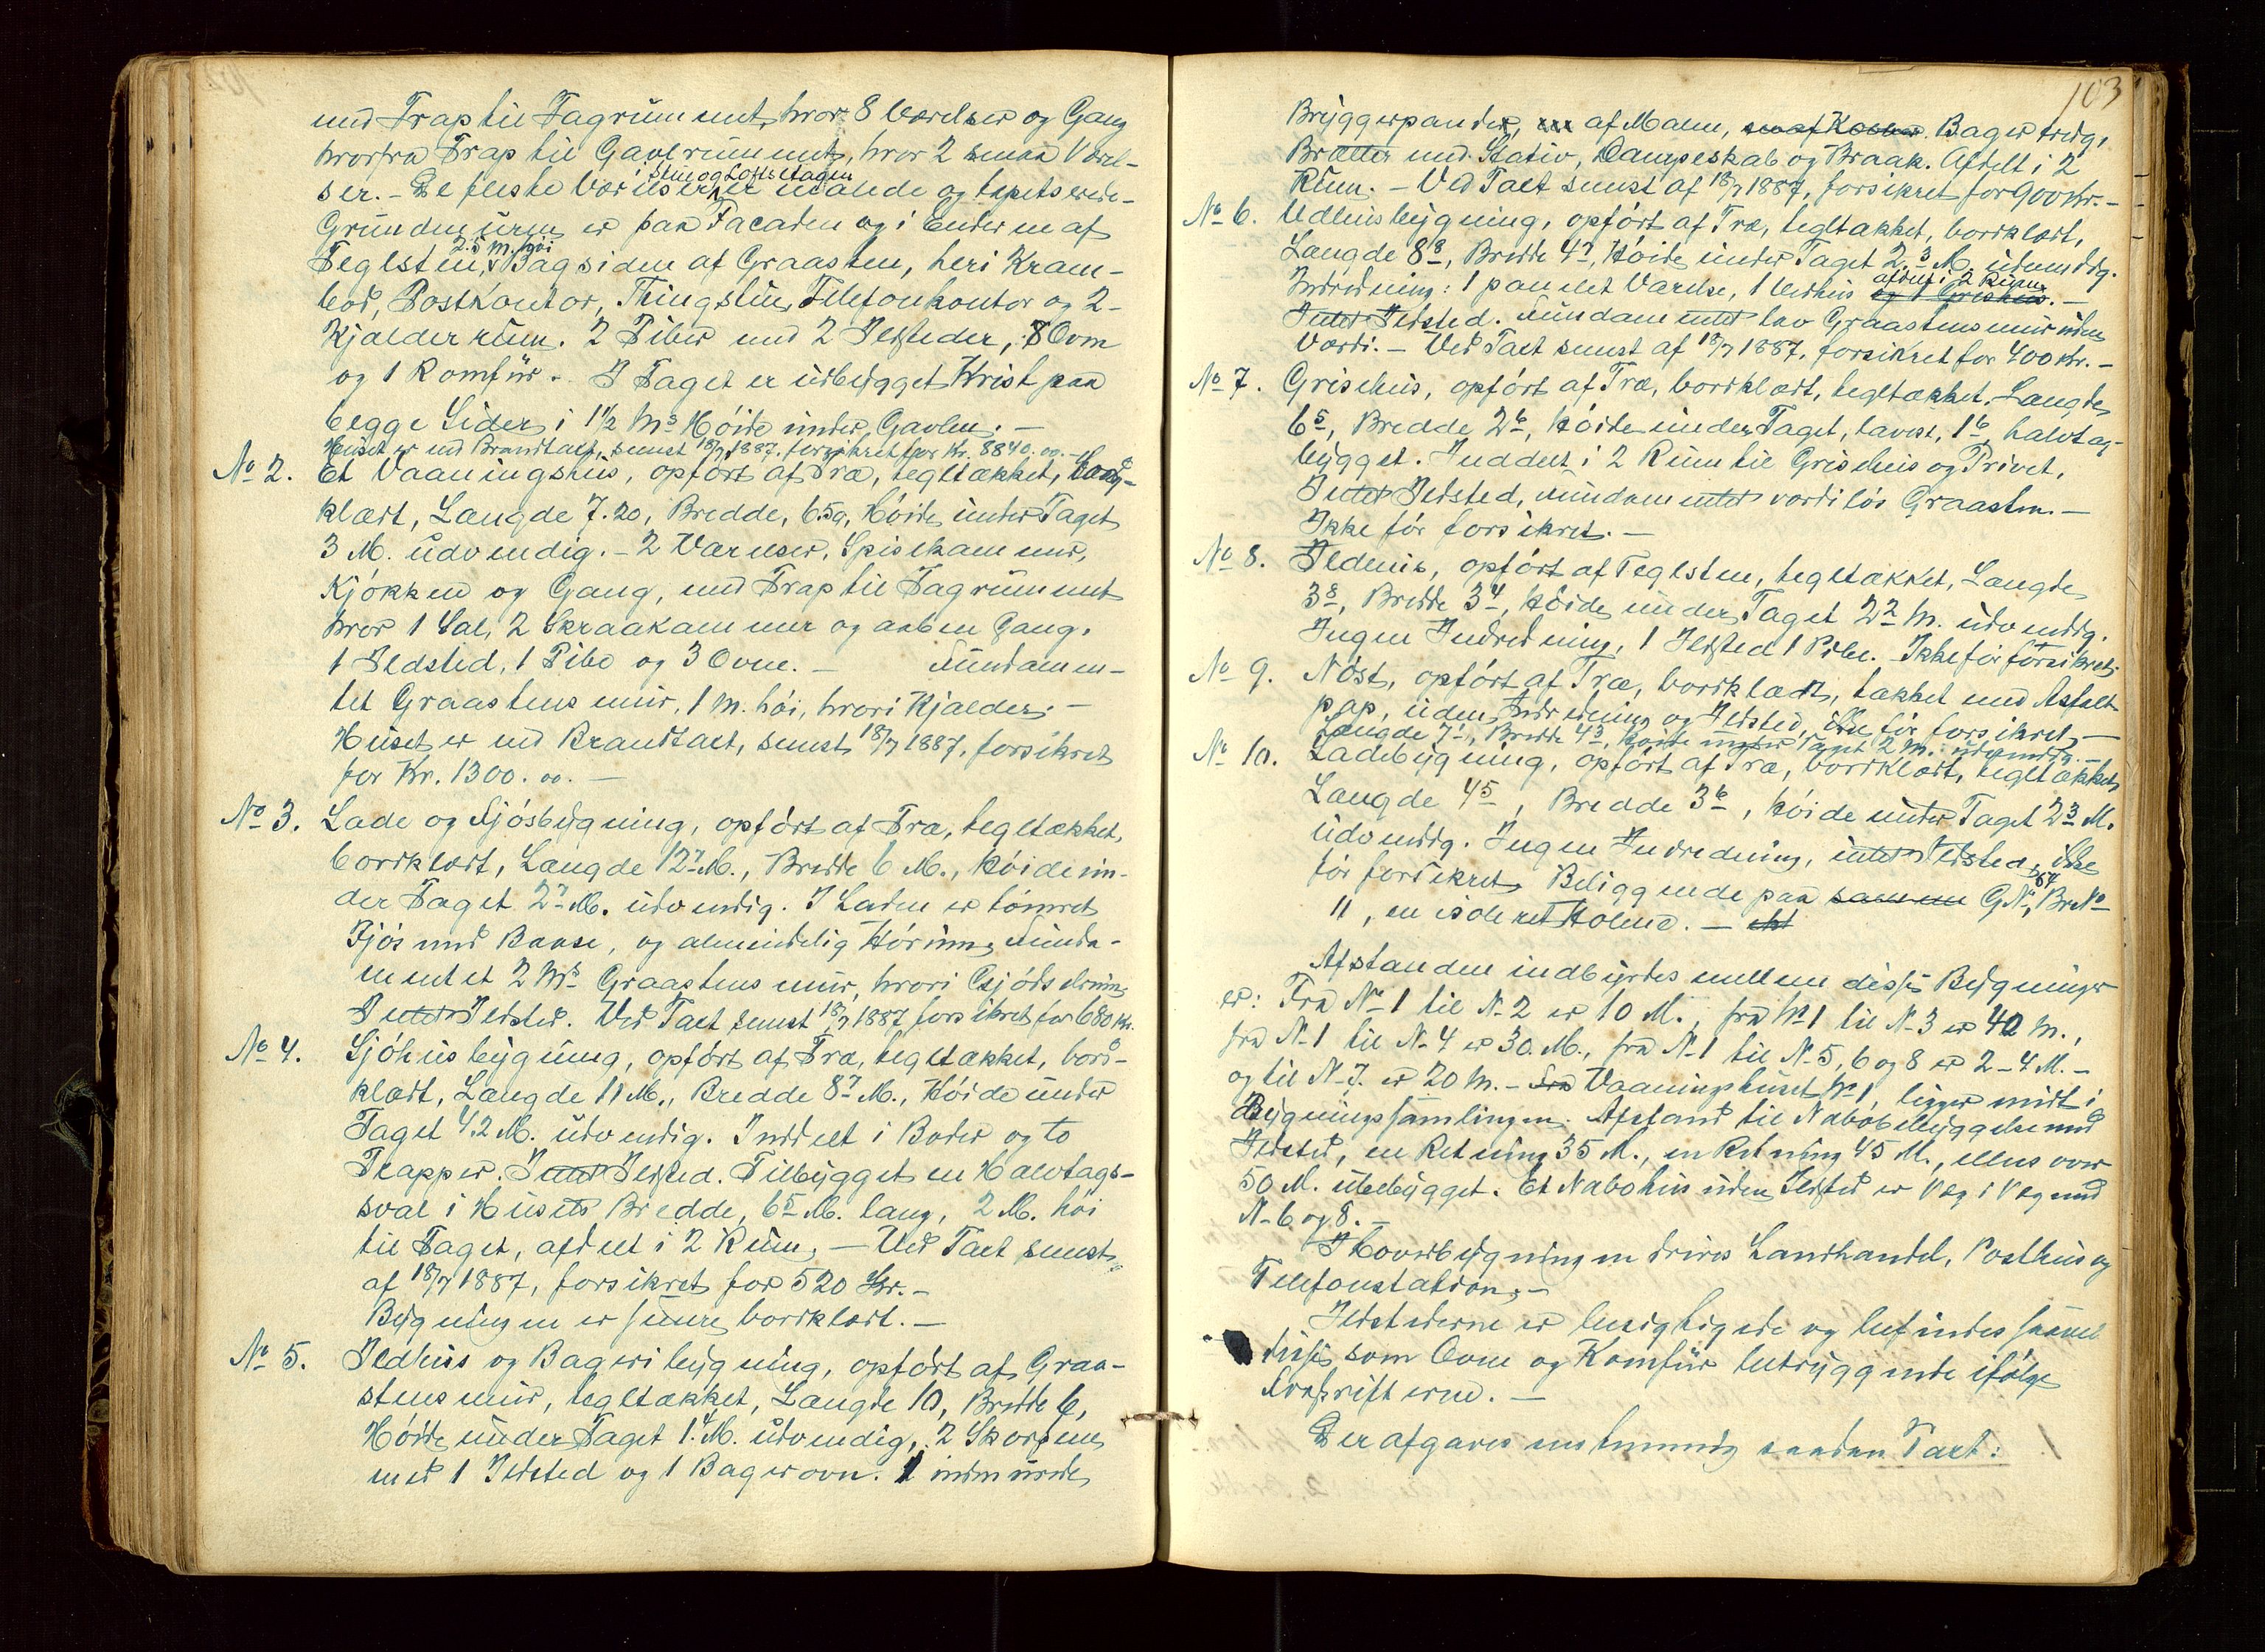 med Trap til Tagrummet, hvor 8 Værelser og Gang
hvorfra Trap til Gavlrummet, hvor 2 smaa Værel-
Stue og Loftsetagen
ser. - De fleste Værelser er malede og tapetserede -
Grundmuren er paa Facaden og i Enderne af
2.5 M. høi
Teglsten, Bagsiden af Graasten, heri Kram-
bod, Postkontor, Thingstue, Telefonkontor og 2 -
Kjælderrum. 2 Piber med 2 Ildsteder, 8 Ovne
og 1 Komfur. I Taget er udbygget Kvist paa
begge Sider i 1½ Ms Høide under Gavlen. -
Huset er ved Brandtaxt, senest 18/7 1887, forsikret for Kr. 8840. oo. -
No 2. Et Vaaningshus, opført af Træ, tegltækket, bord-
klædt, Længde 7.20, Bredde, 6.50, Høide under Taget
3 M. udvendig. - 2 Værelser, Spisekammer,
Kjøkken og Gang, med Trap til Tagrummet
hvor 1 Sal, 2 Skraakammer og aaben Gang.
1 Ildsted, 1 Pibe og 3 Ovne. - Fundamen-
tet Graastensmur, 1 M. høi, hvori Kjælder. -
Huset er ved Brandtaxt, senest 18/7 1887, forsikret
for Kr. 1300. oo. -
No 3. Lade og Fjøsbygning, opført af Træ, tegltækket,
bordklædt, Længde 12.7 M., Bredde 6 M., Høide un-
der Taget 2.7 M. udvendig. I Laden er tømret
Fjøs med Baase, og almindelig Hørum, Funda-
mentet 2 Ms Graastensmur, hvori Gjødselrum,
Intet Ildsted. Ved Taxt senest 18/7 1887 forsikret for 680 Kr.
No 4. Sjøhusbygning, opført af Træ, tegltækket, bord-
klædt, Længde 11 M., Bredde 8.7 M., Høide under
Taget 4.2 M. udvendig. Inddelt i Boder og to
Trapper. Intet Ildsted. Tilbygget en Halvtags-
sval i Husets Bredde, 6.5 M. lang, 2 M. høi
til Taget, afdelt i 2 Rum, - Ved Taxt senest
af 18/7 1887, forsikret for 520 Kr. -
Bygningen er bordklædt. -
No 5. Ildhus og Bageribygning, opført af Graa-
stensmur, tegltækket, Længde 10, Bredde 6,
Høide under Taget 1.4 M. udvendig, 2 Skorstene
med 1 Ildsted og 1 Bagerovn. 1 indmurede
103
Bryggerpander, af Malm, en af Kobber. Bagertrug,
Brætter med Stativ, Dampeskab og Braak. Afdelt i 2
Rum. - Ved Taxt senest af 18/7 1887, forsikret for 900 Kr. -
No 6. Udhusbygning, opført af Træ, tegltækket, bordklædt,
Længde 8.8, Bredde 4.7, Høide under Taget 2.3 M. udvendig.
afdelt i 2 Rum
Indredning: 1 panelet Værelse, 1 Vedhus og 1 Grishus. -
Intet Ildsted. Fundamentet lav Graastensmur uden
Værdi. - Ved Taxt senest af 18/7 1887, forsikret for 400 Kr. -
No 7. Grisehus, opført af Træ, bordklædt, tegltækket. Længde
6.5, Bredde 2.6, Høide under Taget, lavest, 1.6, halvtag-
bygget. Inddelt i 2 Rum til Grisehus og Privet,
Intet Ildsted, Fundamentet værdiløs Graasten. -
Ikke før forsikret. -
No 8. Ildhus, opført af Teglsten, tegltækket, Længde
3.8, Bredde 3.4, Høide under Taget 2.2 M. udvendig.
Ingen Indredning, 1 Ildsted 1 Pibe. Ikke før forsikret.
No 9. Nøst, opført af Træ, bordklædt, tækket med Asfalt
pap, uden Indredning og Ildsted, ikke før forsikret, -
Længde 7.1, Bredde 4.3, Høide under Taget 2 M. udvendig. -
No 10. Ladebygning, opført af Træ, bordklædt, tegltækket,
Længde 4.5, Bredde 3.6, Høide under Taget 2.3 M.
udvendig. Ingen Indredning, intet Ildsted, ikke
64
før forsikret, Beliggende paa samme G.No, BrNo
11, en isoleret Holme. -
Afstanden indbyrdes mellem disse Bygninger
er: Fra No 1 til No 2 er 10 M., fra No 1 til No 3 er 40 M.,
fra No 1 til No 4 er 30. M., fra No 1 til No 5, 6 og 8 er 2 - 4 M. -
og til No 7. er 20 M. - Fra Vaaningshuset No 1, ligger midt i
Bygningssamlingen. Afstand til Nabobebyggelse med
Ildsted, en Retning 35 M., en Retning 45 M., ellers over
50 M. ubebygget. Et Nabohus uden Ildsted er Væg i Væg med
No 6 og 8. -
I Hovedbygningen drives Landhandel, Posthus og
Telefonstation. -
Ildstederne er besigtigede og befindes saavel
disse som Ovne og Komfur betryggende ifølge
Forskrifterne. -
Der afgaves enstemmig saadan Taxt: